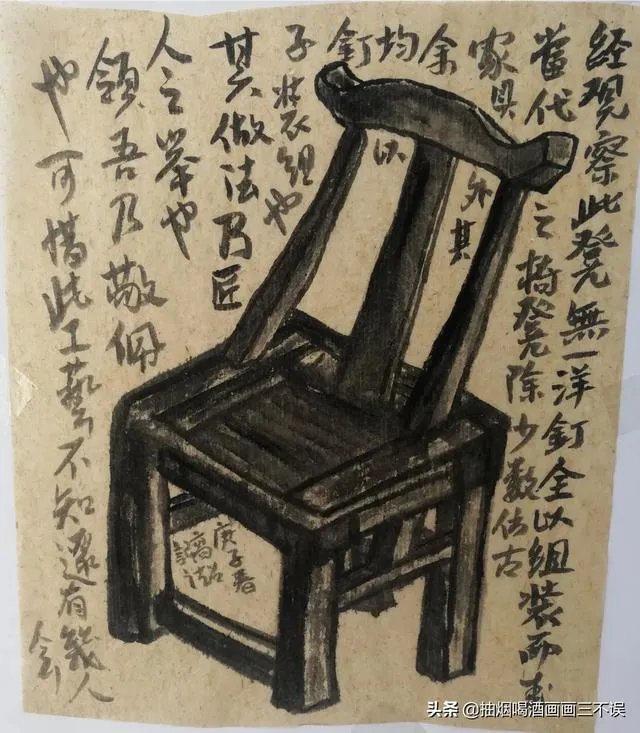 经观察此凳無一洋釘全以組装而成
當代之椅凳除少数仿古
家具
以
外其
余
均
釘
子装组也
其做法乃匠
人之举也
領吾乃敬佩
也可惜此工藝不知還有幾人
会
庚子春
头条 @抽烟喝酒画画三不误